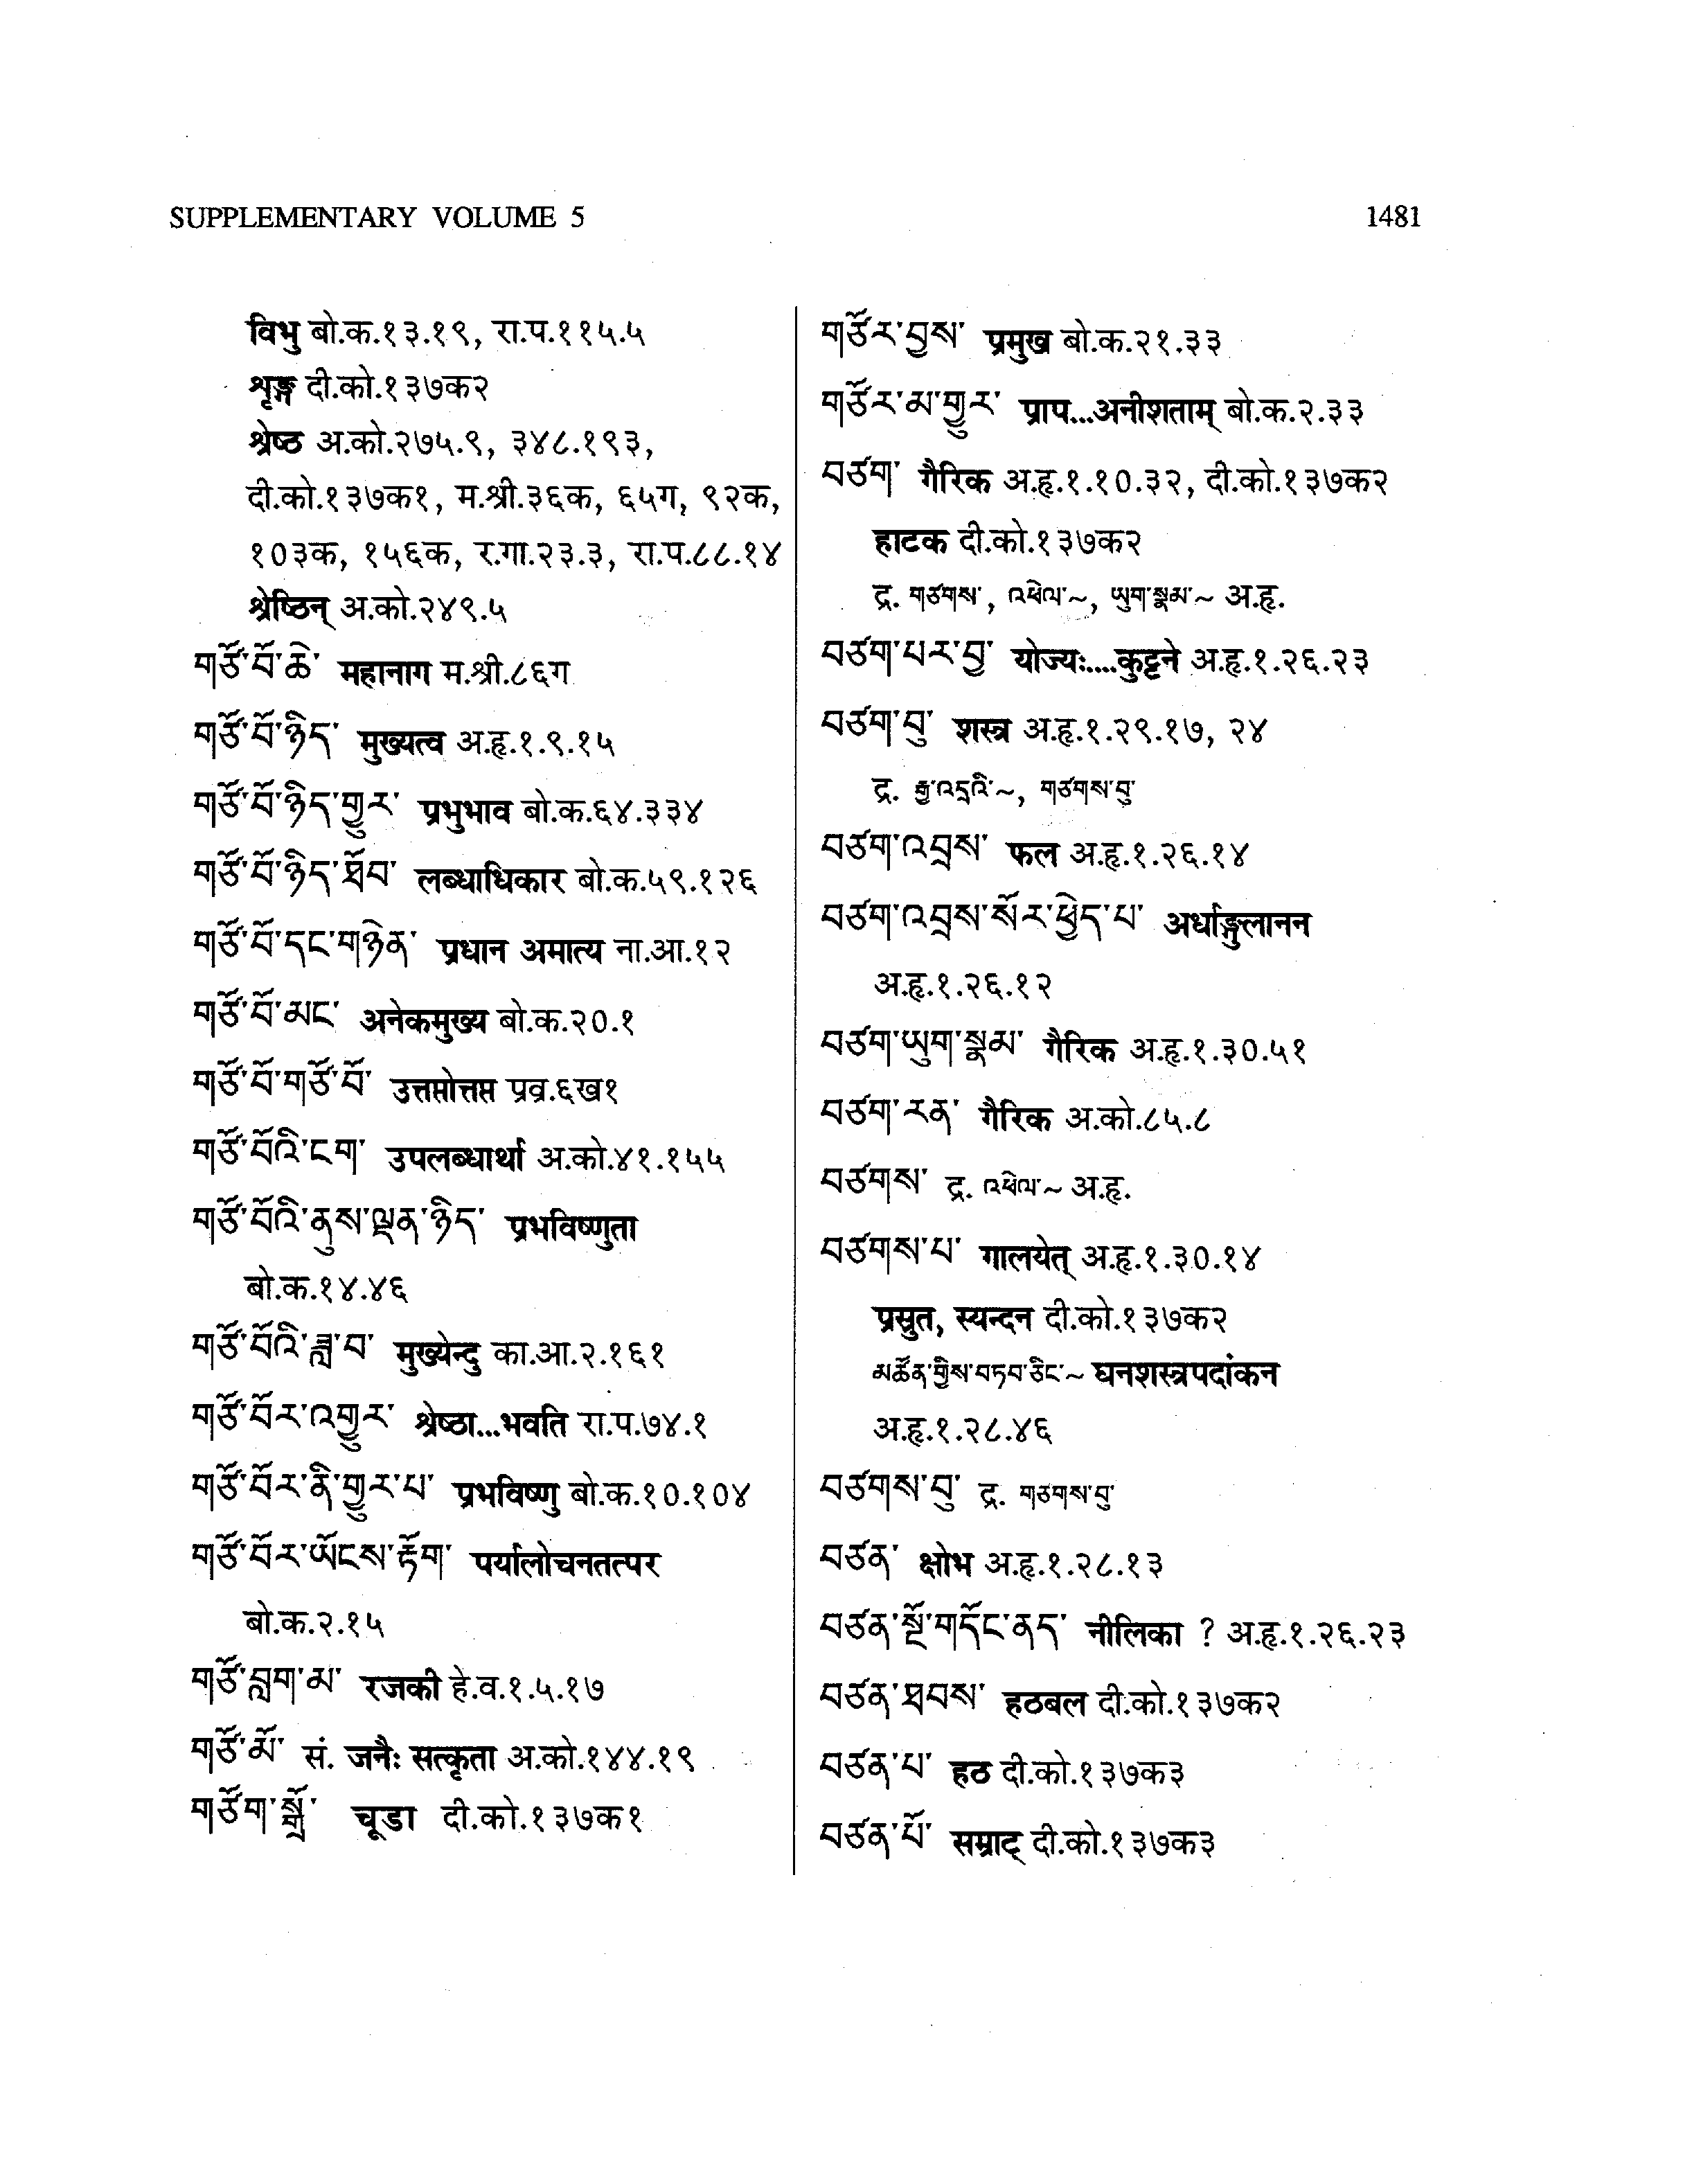 SUPPLEMENTARY VOLUME 5 1481
विभु बो.क.१३.१९, रा.प.११५.५
शृङ्ग दी.को.१३७क२
श्रेष्ठ अ.को.२७५.९, ३४८.१९३,
दी.को.१३७क१, म.श्री.३६क, ६५ग, ९२क,
१०३क, १५६क, र.गा.२३.३, रा.प.८८.१४
श्रेष्ठिन् अ.को.२४९.५
གཙོ་བོ་ཆེ་ महानाग म.श्री.८६ग
གཙོ་བོ་ཉིད་ मुख्यत्व अ.हृ.१.९.१५
གཙོ་བོ་ཉིད་གྱུར་ प्रभुभाव बो.क.६४.३३४
གཙོ་བོ་ཉིད་ཐོབ་ लब्धाधिकार बो.क.५९.१२६
གཙོ་བོ་དང་གཉེན་ प्रधान अमात्य ना.आ.१२
གཙོ་བོ་མང་ अनेकमुख्य बो.क.२०.१
གཙོ་བོ་གཙོ་བོ་ उत्तप्तोत्तप्त प्रव्र.६ख१
གཙོ་བོའི་ངག་ उपलब्धार्था अ.को.४१.१५५
གཙོ་བོའི་ནུས་ལྡན་ཉིད་ प्रभविष्णुता
बो.क.१४.४६
གཙོ་བོའི་ཟླ་བ་ मुख्येन्दु का.आ.२.१६१
གཙོ་བོར་འགྱུར་ श्रेष्ठा...भवति रा.प.७४.१
གཙོ་བོར་ནི་གྱུར་པ་ प्रभविष्णु बो.क.१०.१०४
གཙོ་བོར་ཡོངས་རྟོག་ पर्यालोचनतत्पर
बो.क.२.१५
གཙོ་བླག་མ་ रजकी हे.व.१.५.१७
གཙོ་མོ་ सं. जनैः सत्कृता अ.को.१४४.१९
གཙོག་སྒྲོ་ चूडा दी.को.१३७क१
གཙོར་བྱས་ प्रमुख बो.क.२१.३३
གཙོར་མ་གྱུར་ प्राप...अनीशताम् बो.क.२.३३
བཙག་ गैरिक अ.हृ.१.१०.३२, दी.को.१३७क२
हाटक दी.को.१३७क२
द्र. གཙགས་, འཕེལ་~, ཡུག་སྣམ་~ अ.हृ.
བཙག་པར་བྱ་ योज्यः....कुट्टने अ.हृ.१.२६.२३
བཙག་བུ་ शस्त्र अ.हृ.१.२९.१७, २४
द्र. རྒྱ་འདྲའི་~, གཙགས་བུ་
བཙག་འབྲས་ फल अ.हृ.१.२६.१४
བཙག་འབྲས་སོར་ཕྱེད་པ་ अर्धाङ्गुलानन
अ.हृ.१.२६.१२
བཙག་ཡུག་སྣམ་ गैरिक अ.हृ.१.३०.५१
བཙག་རན་ गैरिक अ.को.८५.८
བཙགས་ द्र. འཕེལ་~ अ.हृ.
བཙགས་པ་ गालयेत् अ.हृ.१.३०.१४
प्रस्रुत, स्यन्दन दी.को.१३७क२
མཚོན་གྱིས་བཏབ་ཅིང་~ घनशस्त्रपदांकन
अ.हृ.१.२८.४६
བཙགས་བུ་ द्र. གཙགས་བུ་
བཙན་ क्षोभ अ.हृ.१.२८.१३
བཙན་སྔོ་གདོང་ནད་ नीलिका ? अ.हृ.१.२६.२३
བཙན་ཐབས་ हठबल दी.को.१३७क२
བཙན་པ་ हठ दी.को.१३७क३
བཙན་པོ་ सम्राट् दी.को.१३७क३